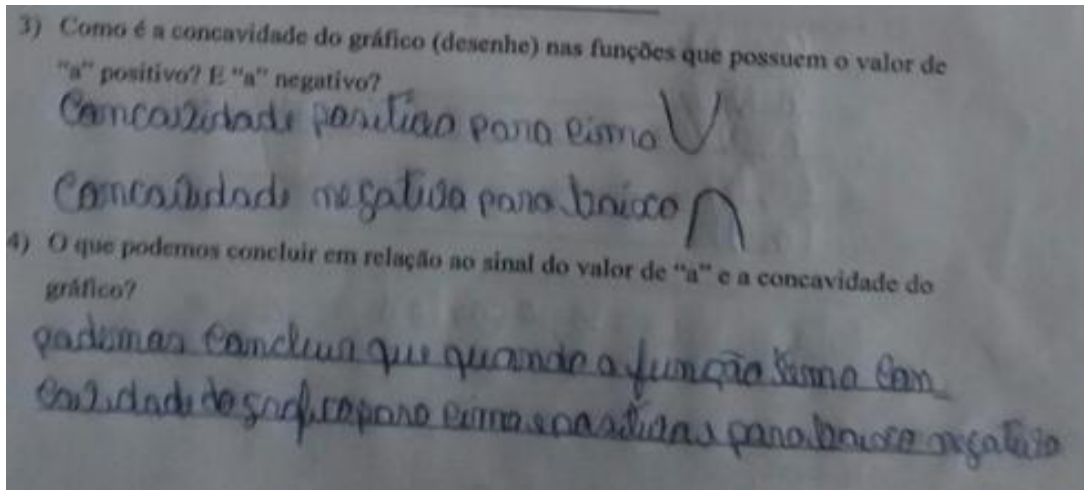 3) Como é a concavidade do gráfico (desenhe) nas funções que possuem o valor de
"a" positivo? E "a" negativo?
Concavidade positiva para cima
Concavidade negativa para baixo
4) O que podemos concluir em relação ao sinal do valor de "a" e a concavidade do
gráfico?
podemos concluir que quando a função con
cavidade do grafico para cima e para baixo negativo